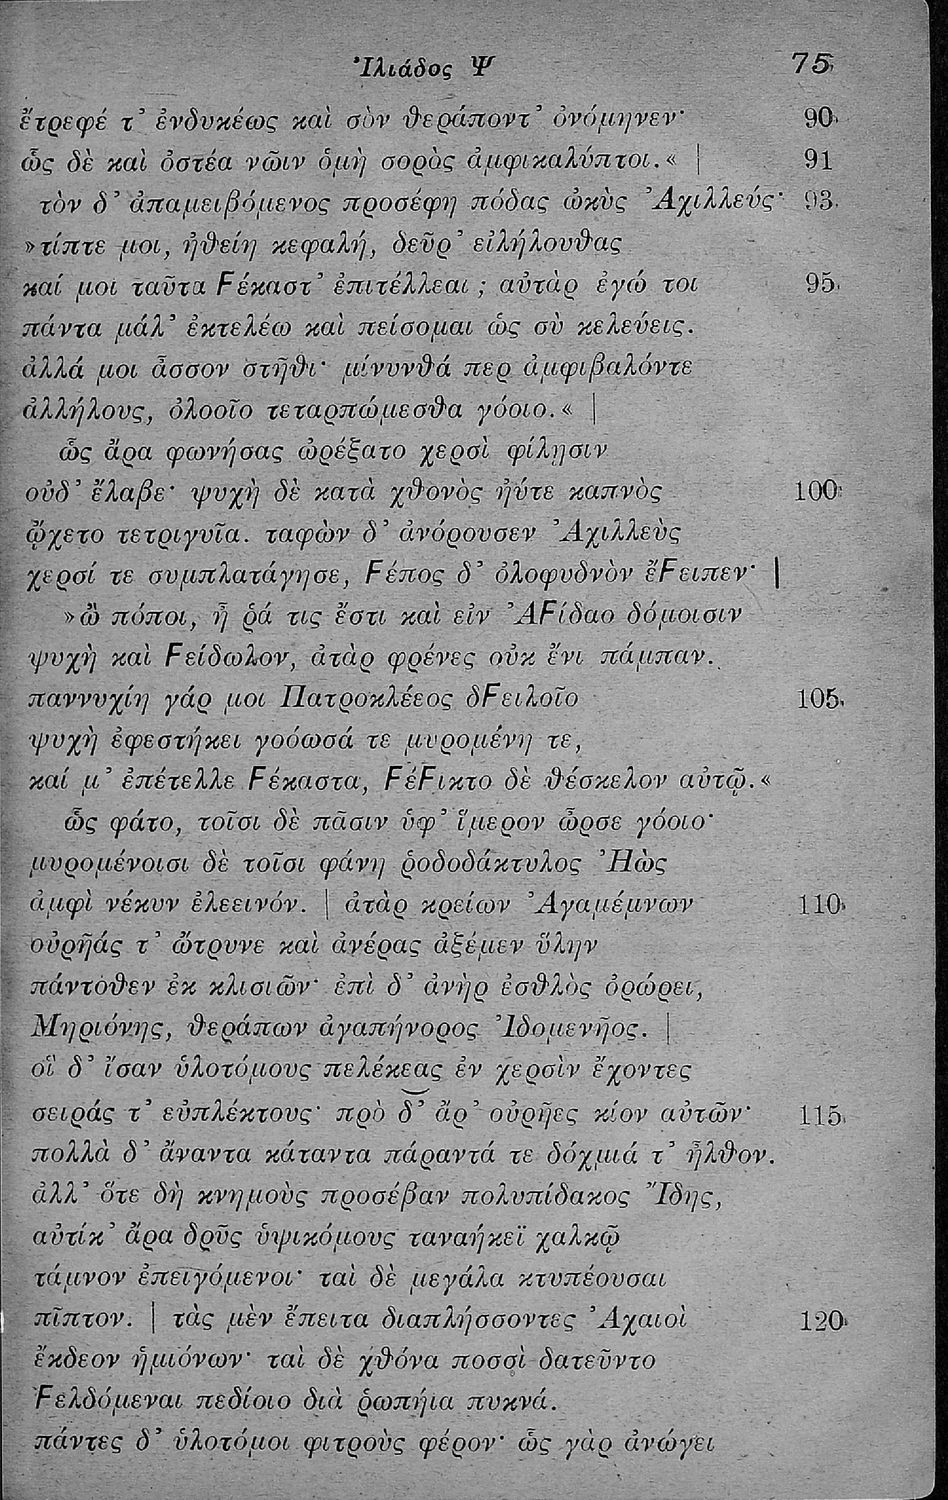 Ἰλιάδος Ψ 75
ἔτρεφέ τ᾽ ἐνδυκέως καὶ σὸν θεράποντ᾽ ὀνόμηνεν· 90
ὣς δὲ καὶ ὀστέα νῶιν ὁμὴ σορὸς ἀμφικαλύπτοι.« | 91
τὸν δ᾽ ἀπαμειβόμενος προσέφη πόδας ὠκὺς Ἀχιλλεύς· 93
»τίπτε μοι, ἠθείη κεφαλή, δεῦρ᾽ εἰλήλουθας
καί μοι ταῦτα Ϝέκαστ᾽ ἐπιτέλλεαι; αὐτὰρ ἐγώ τοι 95
πάντα μάλ᾽ ἐκτελέω καὶ πείσομαι ὡς σὺ κελεύεις.
ἀλλά μοι ἆσσον στῆθι· μίνυνθά περ ἀμφιβαλόντε
ἀλλήλους, ὀλοοῖο τεταρπώμεσθα γόοιο.« |
ὣς ἄρα φωνήσας ὠρέξατο χερσὶ φίλῃσιν
οὐδ᾽ ἔλαβε· ψυχὴ δὲ κατὰ χθονὸς ἠύτε καπνὸς 100
ᾤχετο τετριγυῖα. ταφὼν δ᾽ ἀνόρουσεν Ἀχιλλεὺς
χερσί τε συμπλατάγησε, Ϝέπος δ᾽ ὀλοφυδνὸν ἔϜειπεν· |
»ὢ πόποι, ἦ ῥά τις ἔστι καὶ εἰν ἈϜίδαο δόμοισιν
ψυχὴ καὶ Ϝείδωλον, ἀτὰρ φρένες οὐκ ἔνι πάμπαν.
παννυχίη γάρ μοι Πατροκλέεος δϜειλοῖο 105
ψυχὴ ἐφεστήκει γοόωσά τε μυρομένη τε,
καί μ᾽ ἐπέτελλε Ϝέκαστα, ϜέϜικτο δὲ θέσκελον αὐτῷ.«
ὣς φάτο, τοῖσι δὲ πᾶσιν ὑφ᾽ ἵμερον ὦρσε γόοιο·
μυρομένοισι δὲ τοῖσι φάνη ῥοδοδάκτυλος Ἠὼς
ἀμφὶ νέκυν ἐλεεινόν. | ἀτὰρ κρείων Ἀγαμέμνων 110
οὐρῆάς τ᾽ ὤτρυνε καὶ ἀνέρας ἀξέμεν ὕλην
πάντοθεν ἐκ κλισιῶν· ἐπὶ δ᾽ ἀνὴρ ἐσθλὸς ὀρώρει,
Μηριόνης, θεράπων ἀγαπήνορος Ἰδομενῆος. |
οἳ δ᾽ ἴσαν ὑλοτόμους πελέκεας ἐν χερσὶν ἔχοντες
σειράς τ᾽ εὐπλέκτους· πρὸ δ᾽ ἄρ᾽ οὐρῆες κίον αὐτῶν· 115
πολλὰ δ᾽ ἄναντα κάταντα πάραντά τε δόχμιά τ᾽ ἦλθον.
ἀλλ᾽ ὅτε δὴ κνημοὺς προσέβαν πολυπίδακος Ἴδης,
αὐτίκ᾽ ἄρα δρῦς ὑψικόμους ταναήκεϊ χαλκῷ
τάμνον ἐπειγόμενοι· ταὶ δὲ μεγάλα κτυπέουσαι
πῖπτον. | τὰς μὲν ἔπειτα διαπλήσσοντες Ἀχαιοὶ 120
ἔκδεον ἡμιόνων· ταὶ δὲ χθόνα ποσσὶ δατεῦντο
Ϝελδόμεναι πεδίοιο διὰ ῥωπήια πυκνά.
πάντες δ᾽ ὑλοτόμοι φιτροὺς φέρον· ὣς γὰρ ἀνώγει